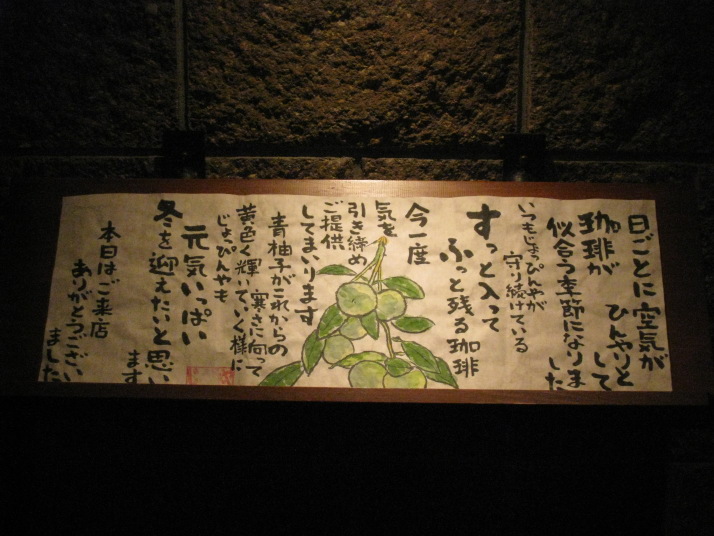 日ごとに空気が
ひんやりとして
珈琲が
似合う季節になりました
いつもじょっぴんやが
守り続けている
すっと入って
ふっと残る珈琲
今一度
気を
引き締め
ご提供
してまいります
青柚子がこれからの
寒さに向って
黄色く輝いていく様に
じょっぴんやも
元気いっぱい
冬を迎えたいと思います
本日はご来店
ありがとうございました